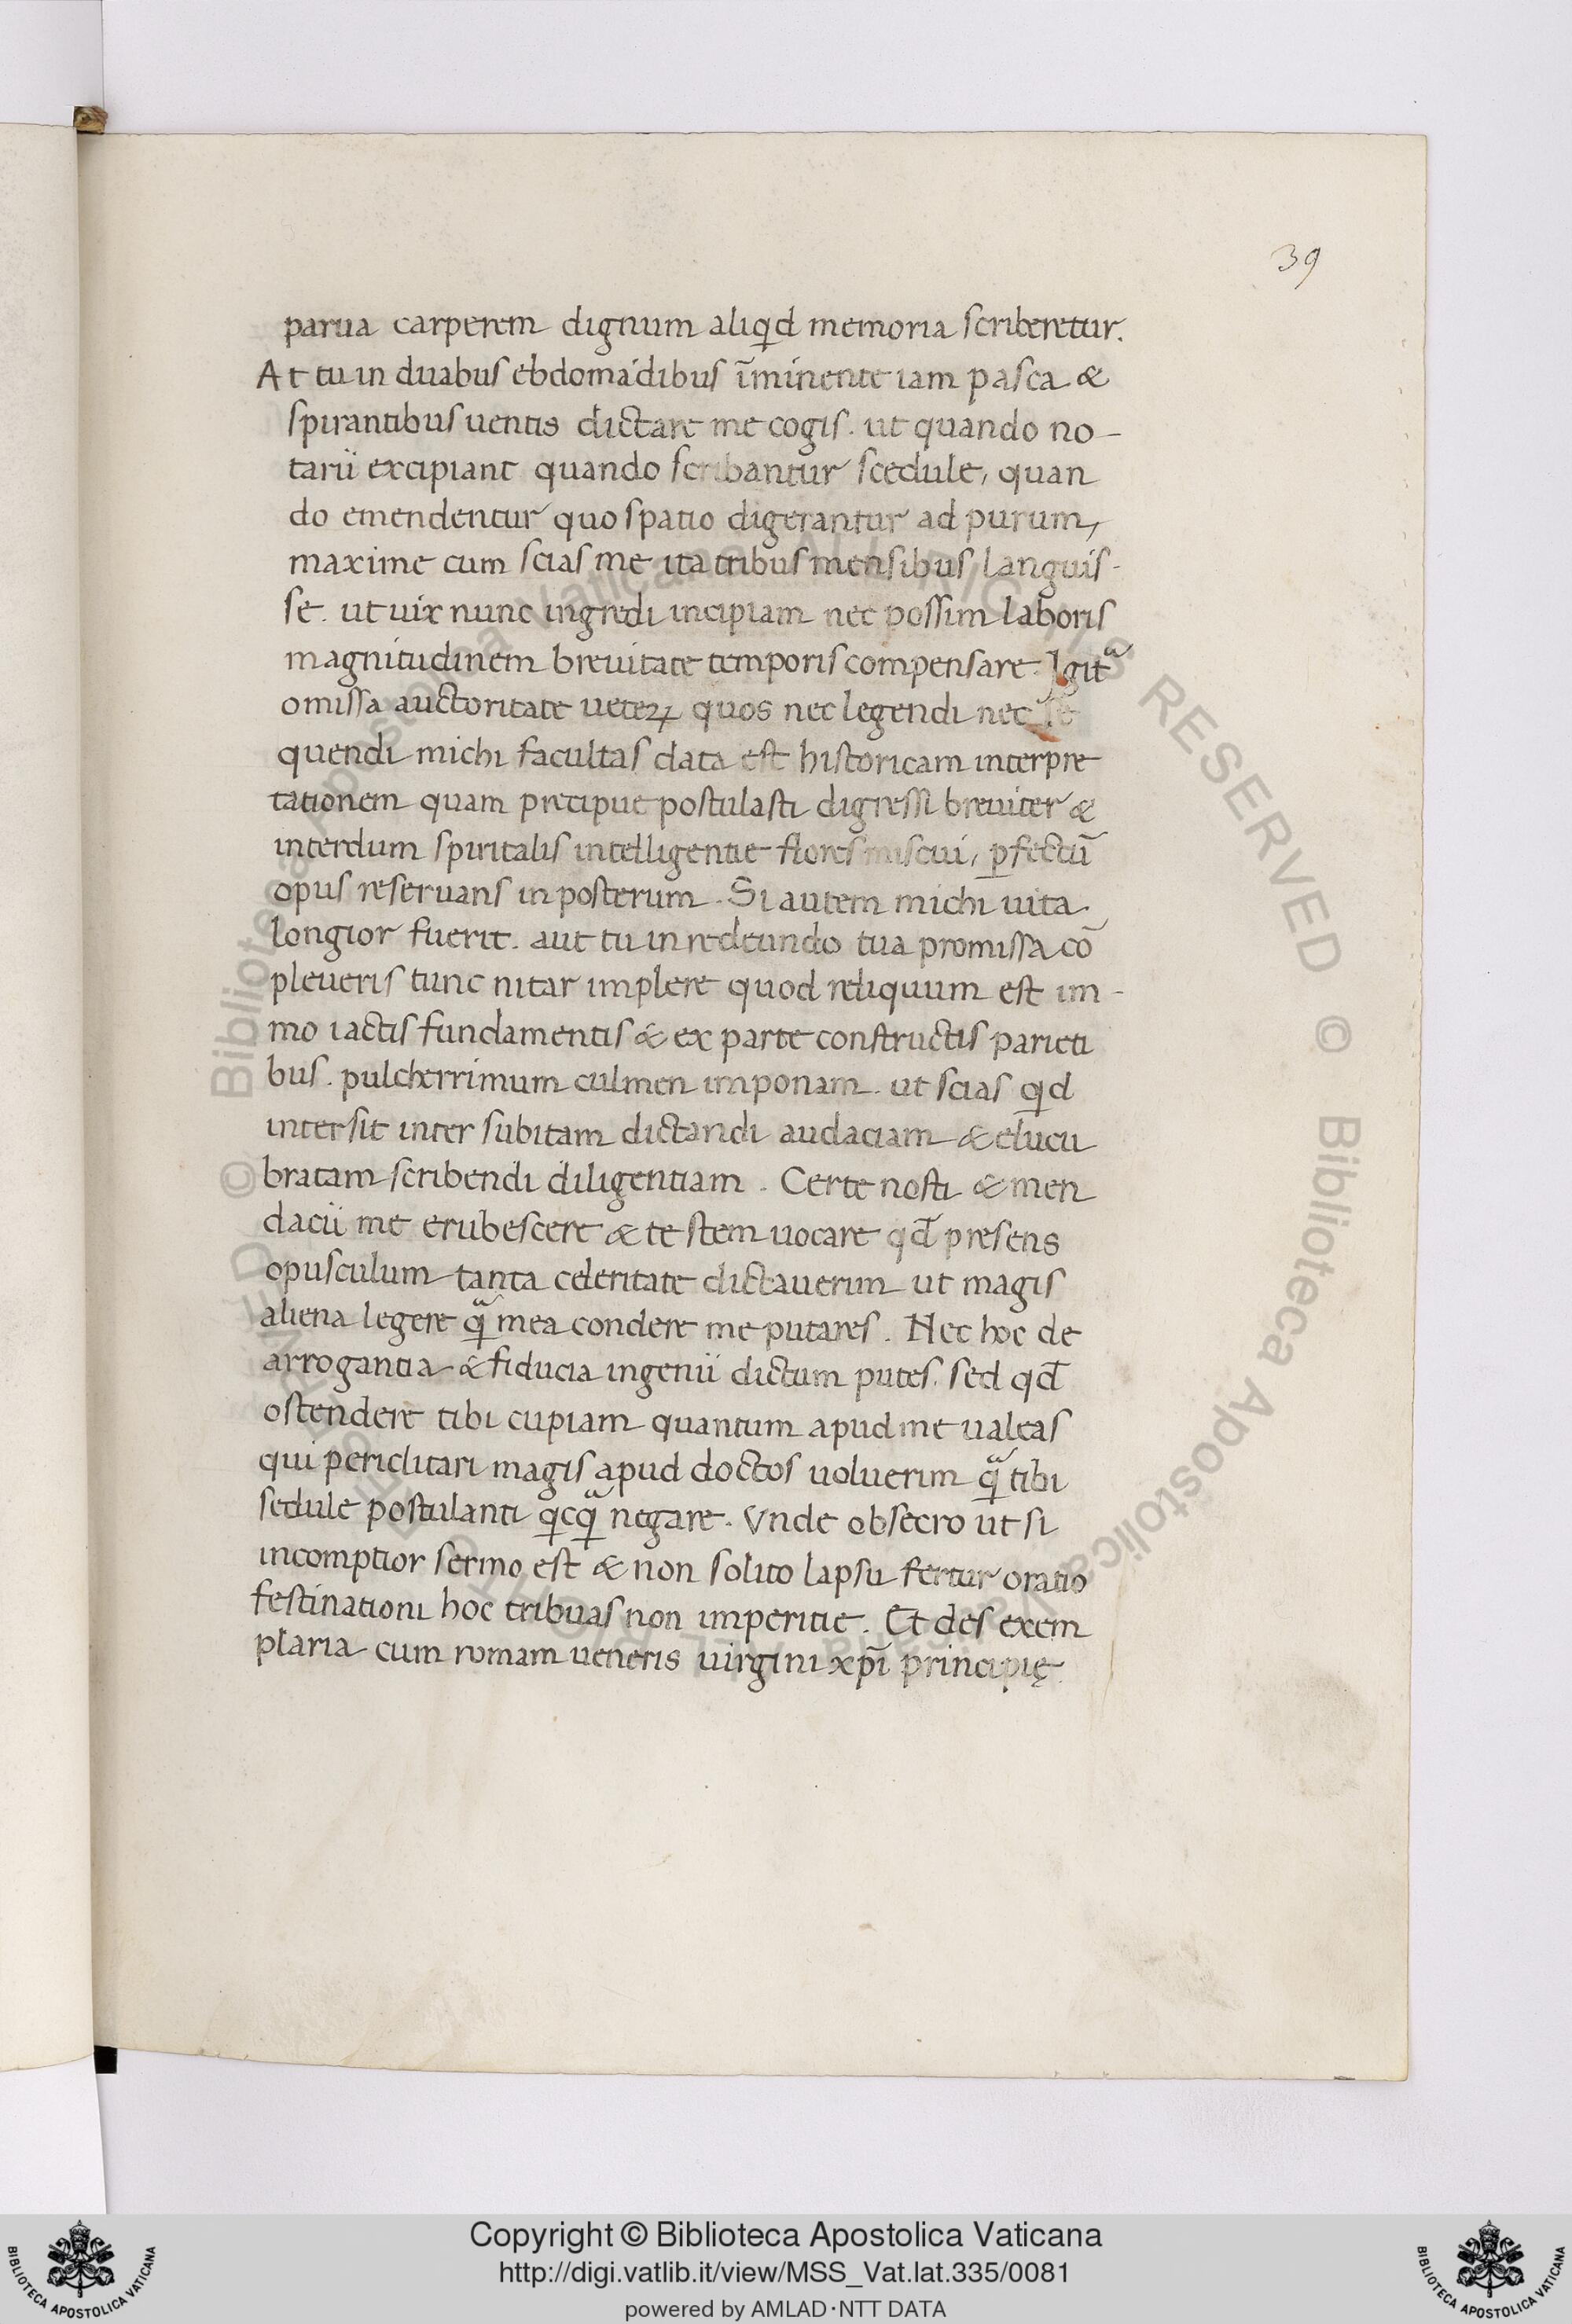 39
parua carperem dignum aliqͥd memoria scriberetur.
At tu in duabus ebdomadibus īminente iam pasca &
spirantibus uentis dictare me cogis. ut quando no-
tarii excipiant quando scribantur scedule, quan
do emendentur quo spatio digerantur ad purum,
maxime cum scias me ita tribus mensibus languis-
se. ut uix nunc ingredi incipiam nec possim laboris
magnitudinem breuitate temporis compensare. Igit᷑
omissa auctoritate ueteꝝ quos nec legendi nec se
quendi michi facultas data est historicam interpre
tationem quam precipue postulasti digressi breuiter &
interdum spiritalis intelligentie flores miscui, ꝑfectū
opus reseruans in posterum. Si autem michi uita
longior fuerit. aut tu in redeundo tua promissa cō
pleueris tunc nitar implere quod reliquum est im-
mo iactis fundamentis & ex parte constructis parieti
bus. pulcherrimum culmen imponam. ut scias qͥd
intersit inter subitam dictandi audaciam & elucu
bratam scribendi diligentiam. Certe nosti & men
dacii me erubescere & testem uocare qd̄ presens
opusculum tanta celeritate dictauerim ut magis
aliena legere qᷓ mea condere me putares. Nec hoc de
arrogantia & fiducia ingenii dictum putes. sed qd̄
ostendere tibi cupiam quantum apud me ualeas
qui periclitari magis apud doctos uoluerim qᷓ tibi
sedule postulanti qͥcqᷓ negare. Vnde obsecro ut si
incomptior sermo est & non solito lapsu fertur oratio
festinationi hoc tribuas non imperitie. Et des exem
plaria cum romam ueneris uirgini xp̄i principię.
© Biblioteca Apostolica Vaticana ALL RIGHTS RESERVED © Biblioteca Apostolica Vaticana ALL RIGHTS RESERVED
Copyright © Biblioteca Apostolica Vaticana
http://digi.vatlib.it/view/MSS_Vat.lat.335/0081
powered by AMLAD·NTT DATA
BIBLIOTECA APOSTOLICA VATICANA
BIBLIOTECA APOSTOLICA VATICANA